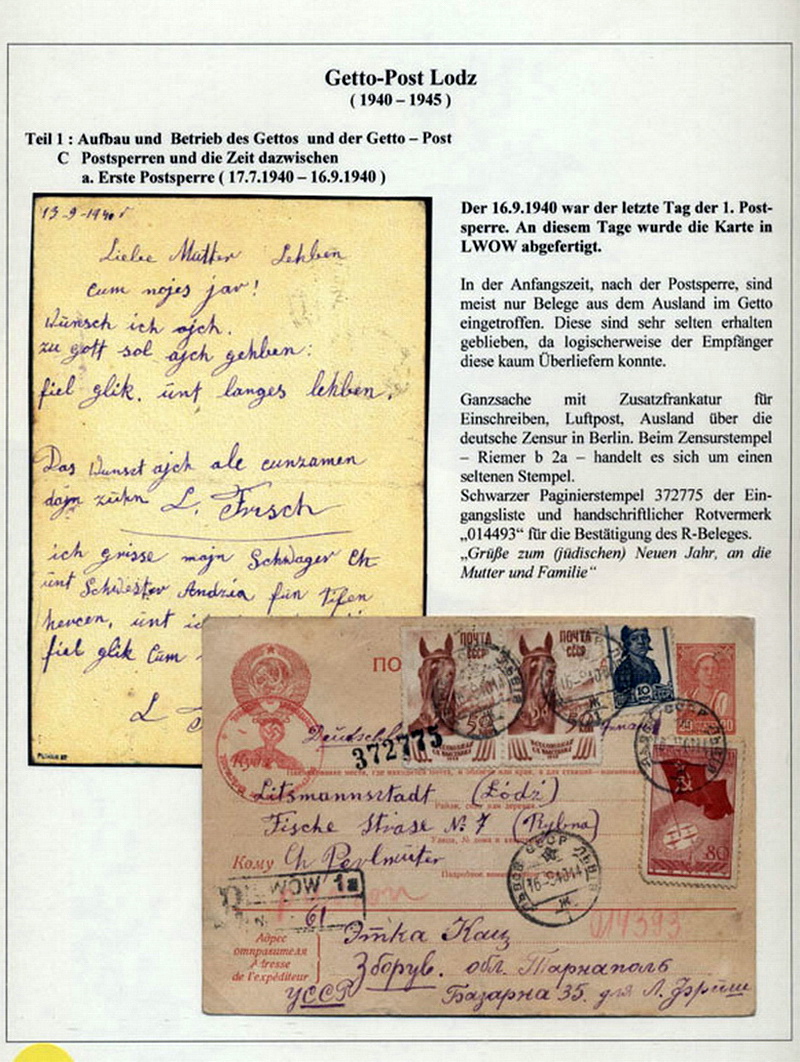 Getto-Post Lodz
( 1940 – 1945 )
Teil 1 : Aufbau und Betrieb des Gettos und der Getto – Post
C Postsperren und die Zeit dazwischen
a. Erste Postsperre ( 17.7.1940 – 16.9.1940 )
13-9-1940 r
Liebe Mutter Lehben
cum nojes jar!
Wünsch ich ajch.
zu gott sol ajch gehben:
fiel glik, ünt langes lehben,
Das Wunset ajch ale cunzamen
dajn zühn L. Frisch
ich grisse majn Schwager Ch
ünt Schwester Andzia fün tifen
hercen, ünt
fiel glik Cum
L
Der 16.9.1940 war der letzte Tag der 1. Post-
sperre. An diesem Tage wurde die Karte in
LWOW abgefertigt.
In der Anfangszeit, nach der Postsperre, sind
meist nur Belege aus dem Ausland im Getto
eingetroffen. Diese sind sehr selten erhalten
geblieben, da logischerweise der Empfänger
diese kaum Überliefern konnte.
Ganzsache mit Zusatzfrankatur für
Einschreiben, Luftpost, Ausland über die
deutsche Zensur in Berlin. Beim Zensurstempel
– Riemer b 2a – handelt es sich um einen
seltenen Stempel.
Schwarzer Paginierstempel 372775 der Ein-
gangsliste und handschriftlicher Rotvermerk
„014493“ für die Bestätigung des R-Beleges.
„Grüße zum (jüdischen) Neuen Jahr, an die
Mutter und Familie“
ПО
ПОЧТА СССР
50
ПОЧТА СССР
50
10
80
Куда
372775
Litsmannsztadt (Łódź)
Fische Strase № 7 (Rybna)
Кому Ch Perlmüter
LWÓW 1a
61
014393
Адрес
отправителя
Adresse
de l'expéditeur
Этка Кац
Зборув. обл. Тарнаполь
УССР Базарна 35. для Л. Фриш